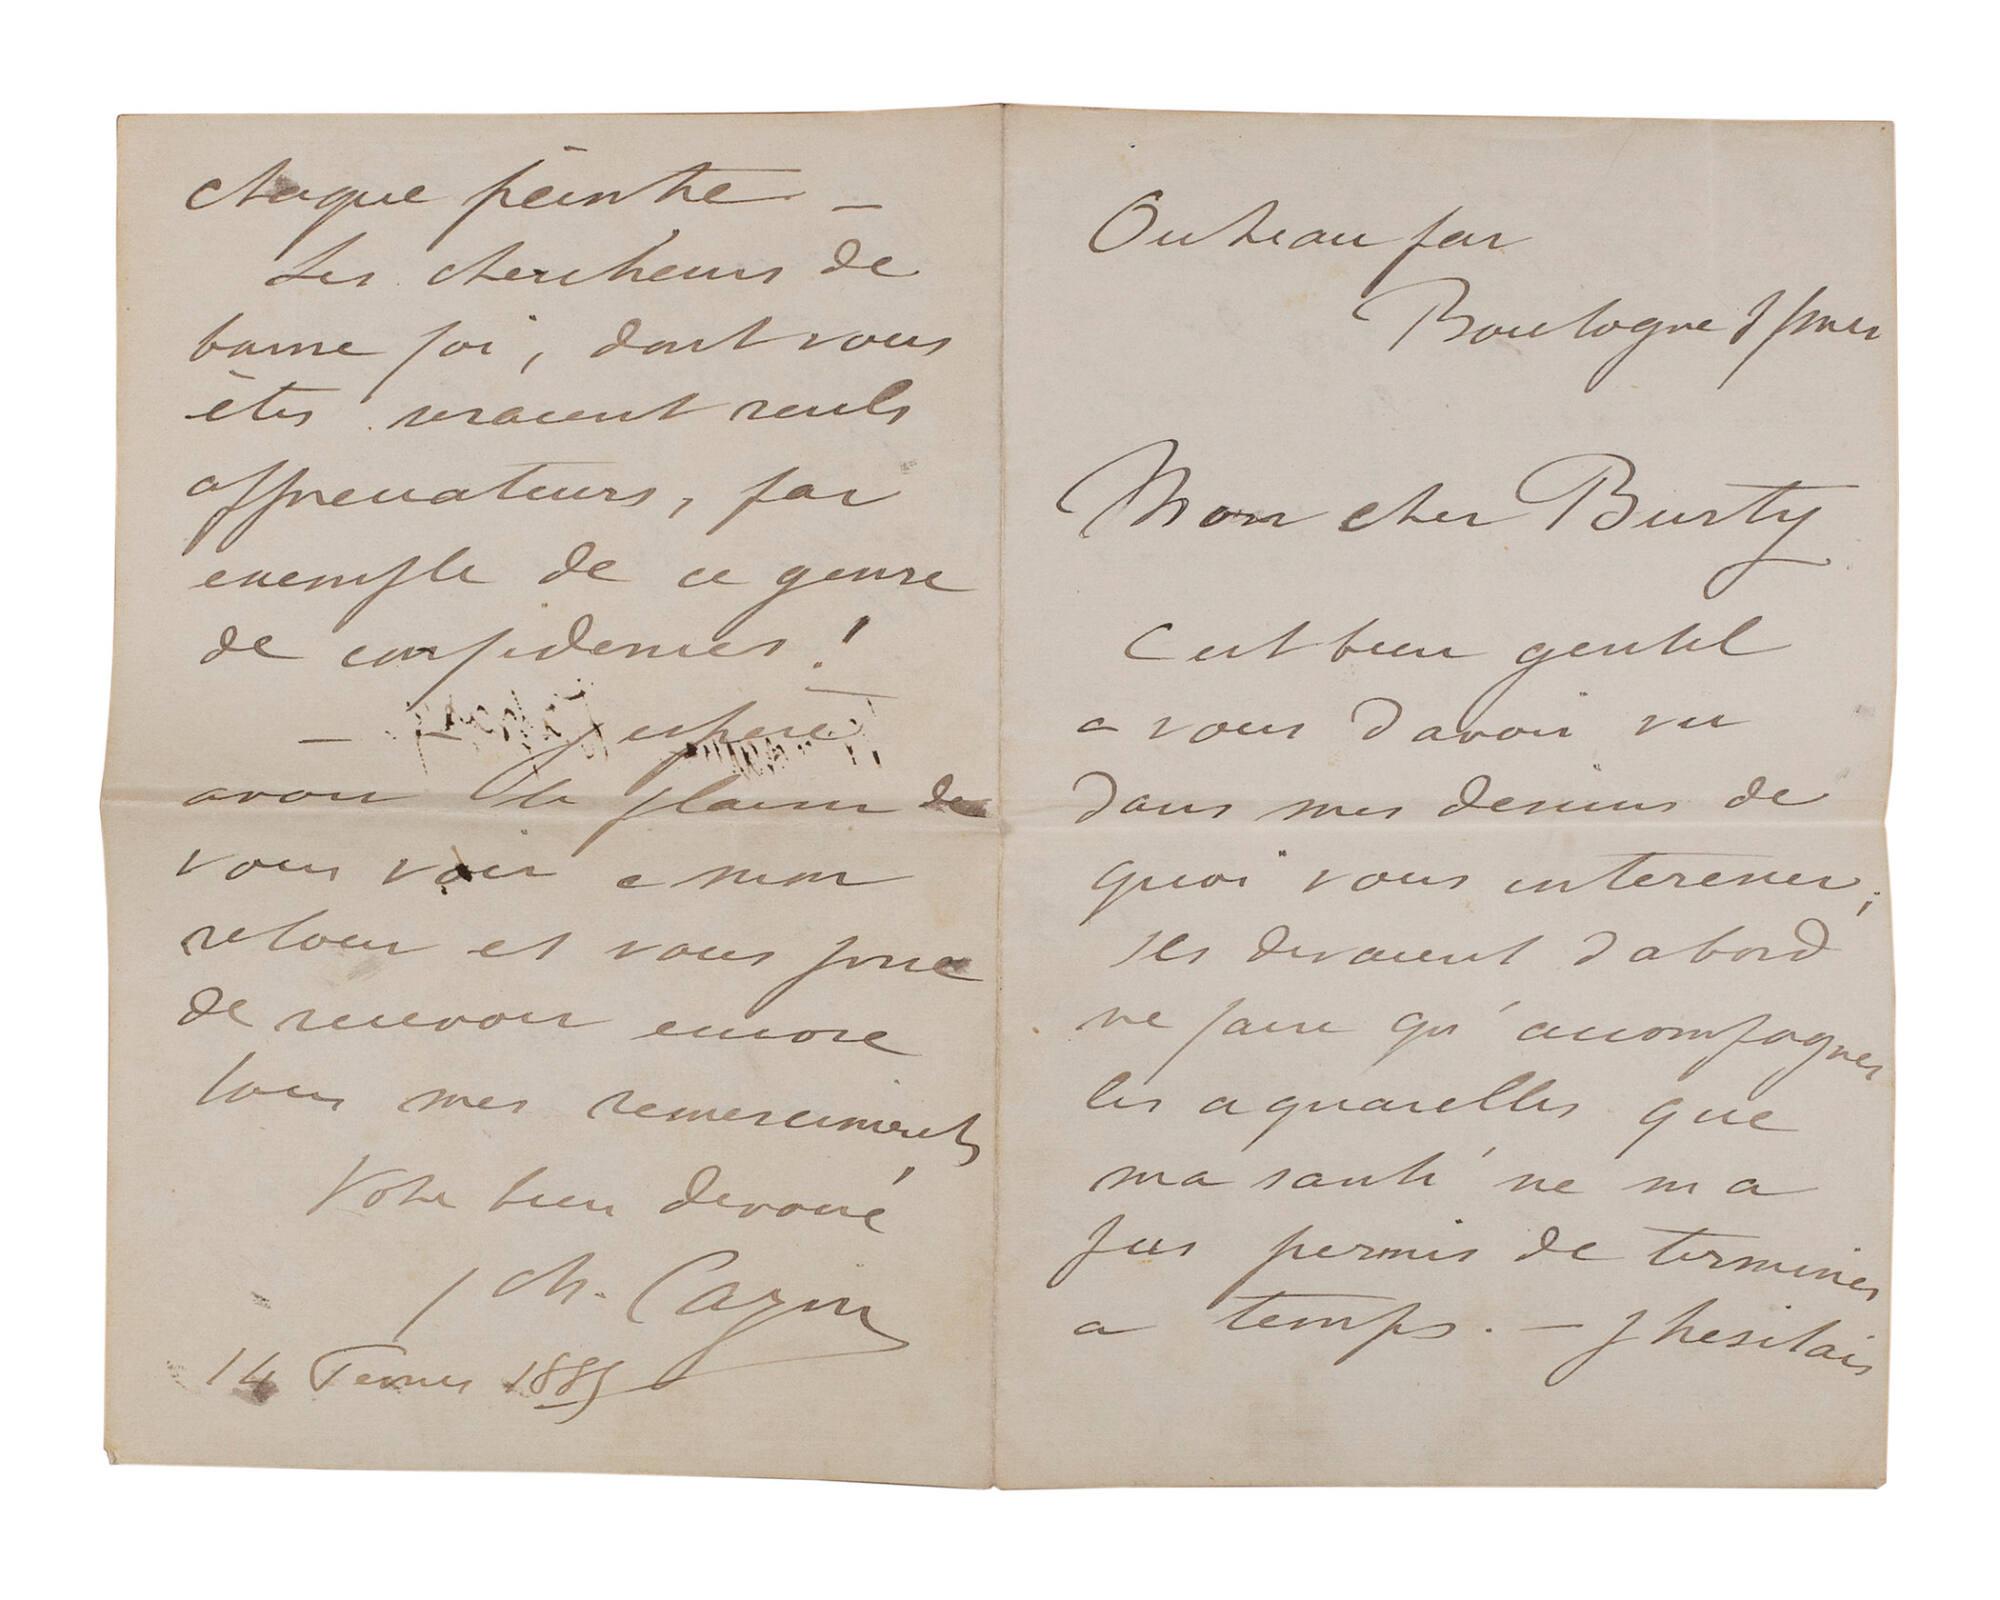 Outreau par
Boulogne s/mer
Mon cher Burty
C est bien gentil
a vous d avoir vu
dans mes dessins de
quoi vous interesser,
ils devaient d abord
ne faire qu' accompagner
les aquarelles que
ma santé ne m a
pas permis de terminer
a temps. — J hesitais
chaque peintre —
Les chercheurs de
bonne foi, dont vous
êtes vraient seuls
appreciateurs, par
exemple de ce genre
de confidences !
— J espere
avoir le plaisir de
vous voir a mon
retour et vous prie
de recevoir encore
tous mes remerciments
Votre bien devoué
J Ch. Cazin
14 Fevrier 1885